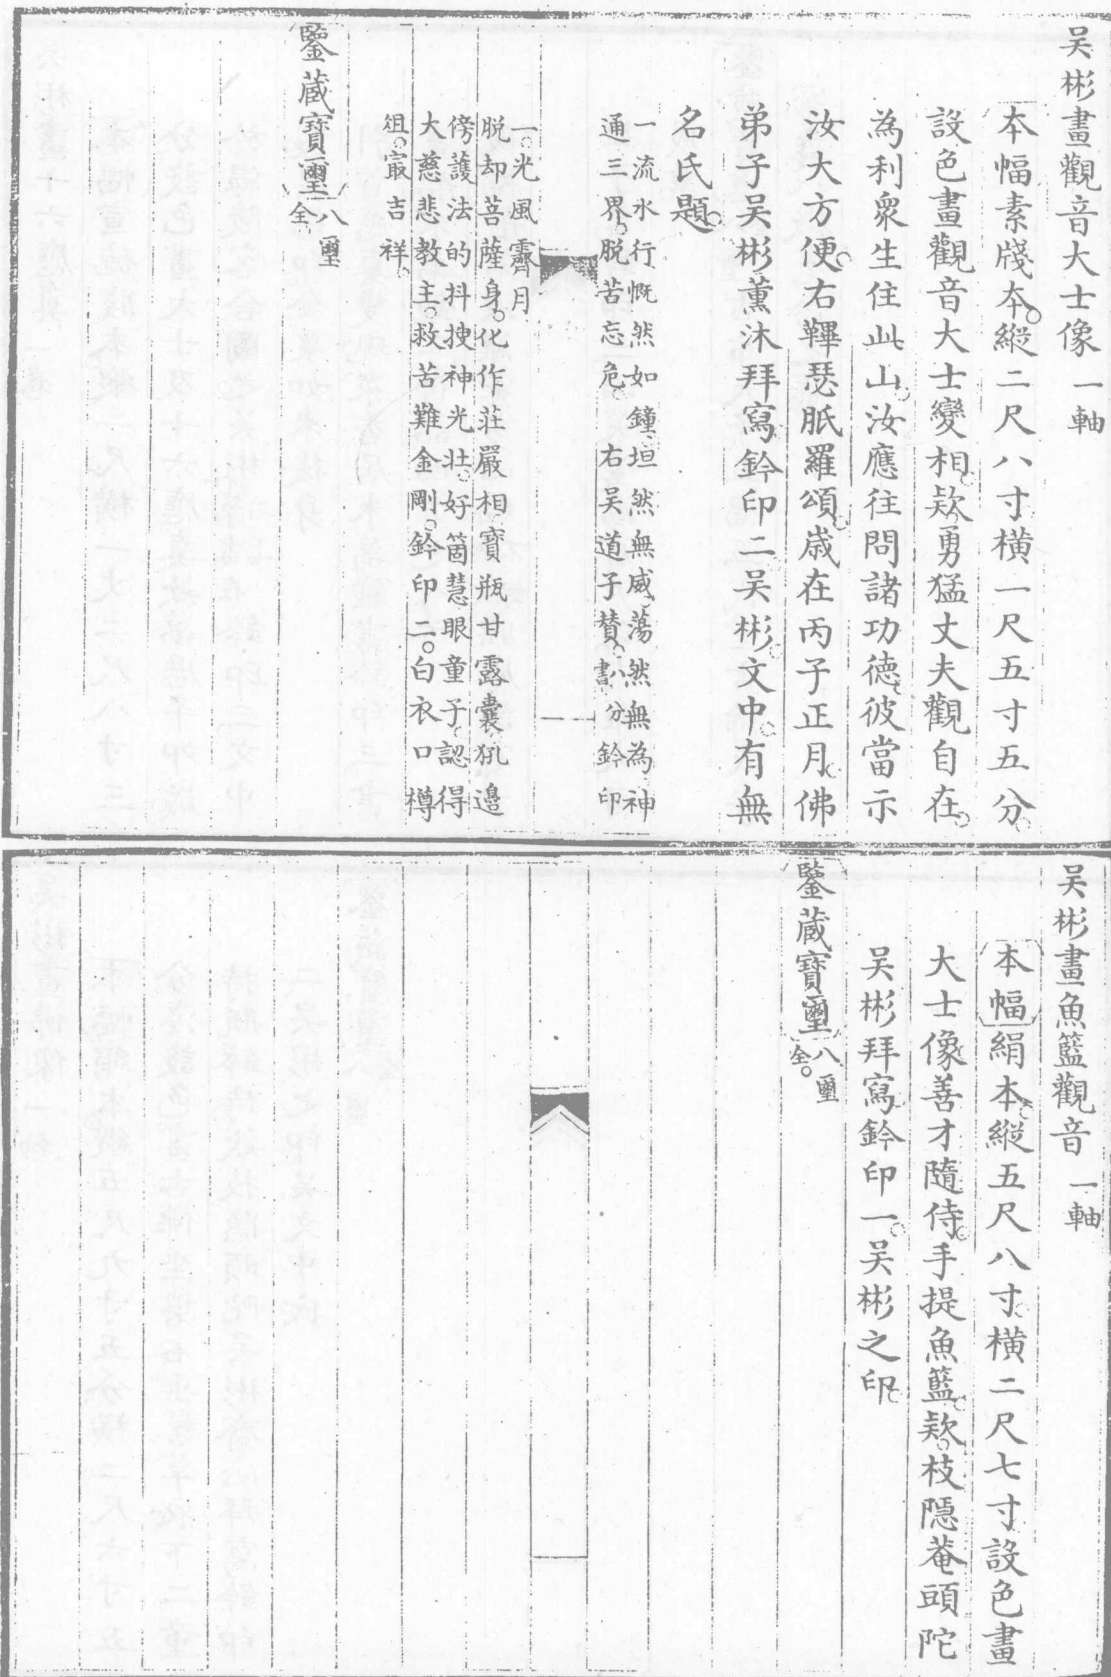 吴彬畫觀音大士像一軸
本幅素牋本縱二尺八寸横一尺五寸五分
設色畫觀音大士變相欵勇猛丈夫觀自在
為利衆生住此山汝應往問諸功德彼當示
汝大方便右鞸瑟胝羅頌歳在丙子正月佛
弟子吴彬薫沐拜寫鈐印二吴彬文中有無
名氏題
一流水行慨然如鐘垣然無威蕩然無為神
通三界脱苦忘危右吴道子賛八分書鈐印
一光風霽月
脱却菩薩身化作莊嚴相寶瓶甘露囊犼邉
傍護法的抖搜神光壯好箇慧眼童子認得
大慈悲教主救苦難金剛鈐印二白衣口樽
俎冣吉祥
鑒藏寶璽八璽全
吴彬畫魚籃觀音一軸
本幅絹本縱五尺八寸横二尺七寸設色畫
大士像善才隨侍手提魚籃欵枝隱菴頭陀
吴彬拜寫鈐印一吴彬之印
鑒藏寶璽八璽全